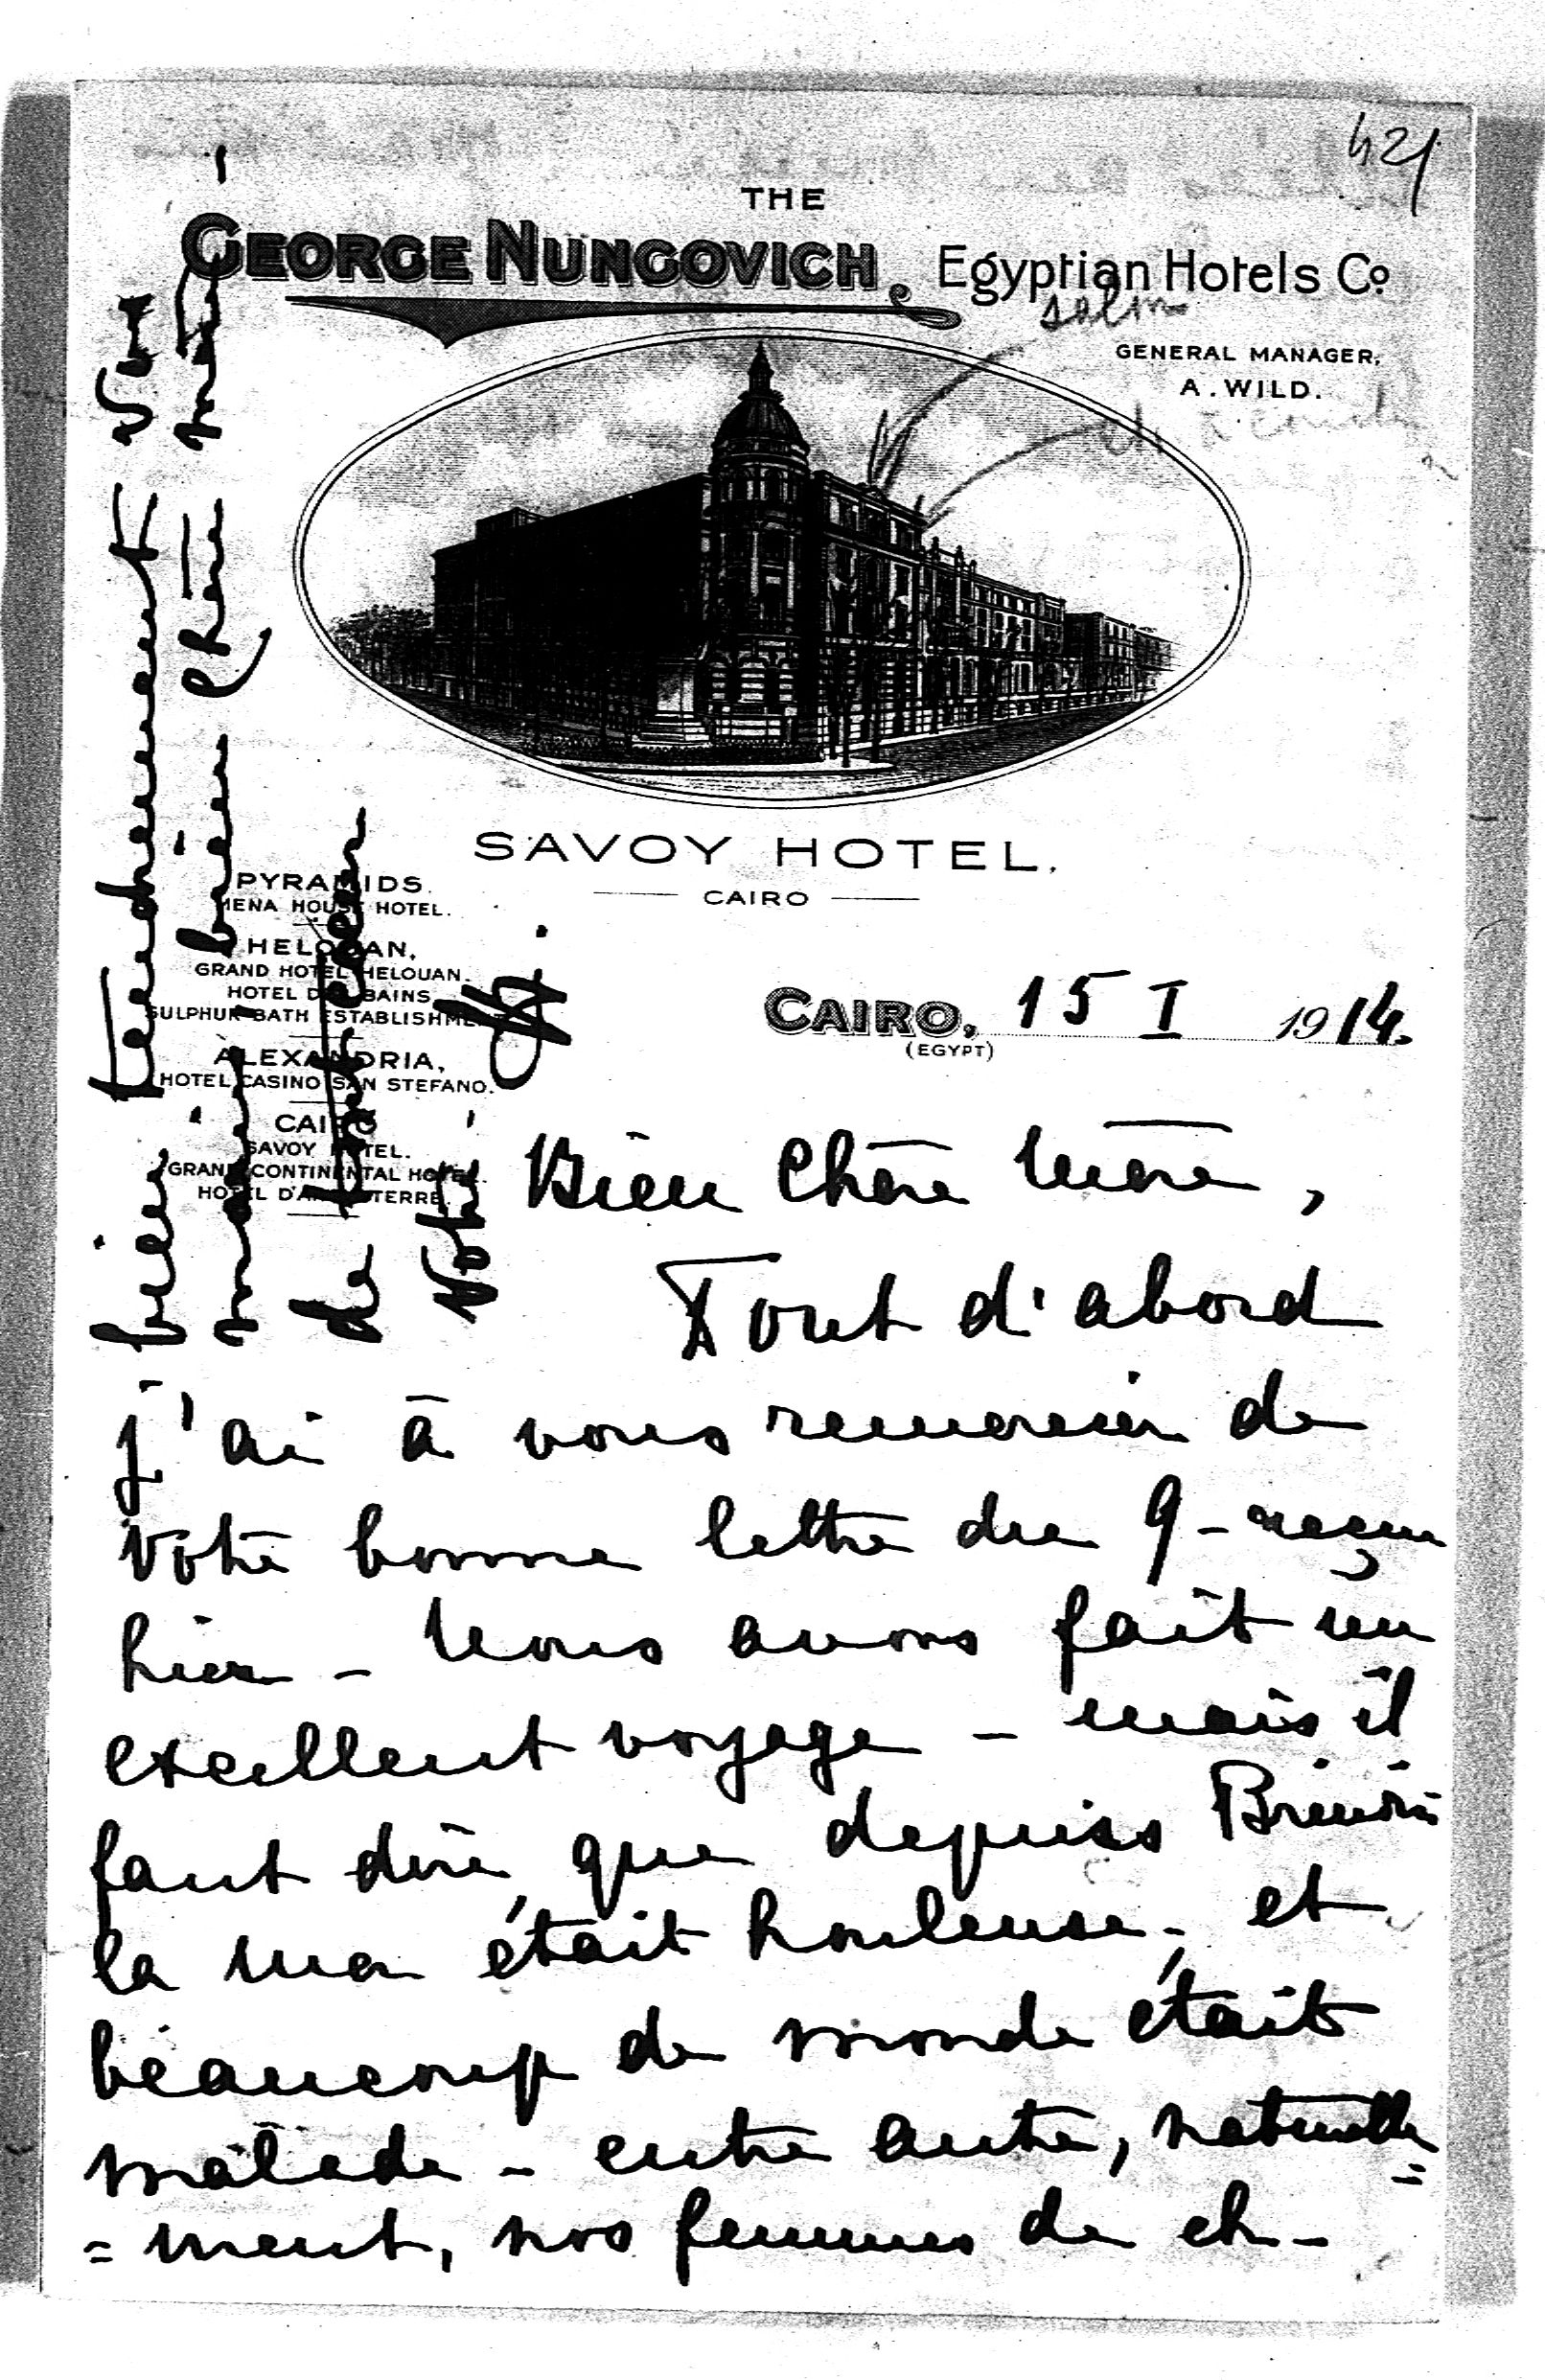 421
THE
GEORGE NUNGOVICH Egyptian Hotels Co.
salon
GENERAL MANAGER,
A. WILD.
ch à couch
SAVOY HOTEL.
CAIRO
PYRAMIDS.
MENA HOUSE HOTEL.
HELOUAN,
GRAND HOTEL HELOUAN.
HOTEL DES BAINS
SULPHUR BATH ESTABLISHMENT
ALEXANDRIA,
HOTEL CASINO SAN STEFANO.
CAIRO
SAVOY HOTEL.
GRAND CONTINENTAL HOTEL.
HOTEL D'ANGLETERRE.
CAIRO, 15 I 1914.
(EGYPT)
Bien Chère Mère,
Tout d'abord
j'ai à vous remercier de
votre bonne lettre du 9 - reçue
hier - Nous avons fait un
excellent voyage - mais il
faut dire que depuis Brindisi
la mer était houleuse - et
beaucoup de monde était
malade - entre autre, naturelle=
=ment, nos femmes de ch-
bien tendrement
bien chère
de tout
Votre